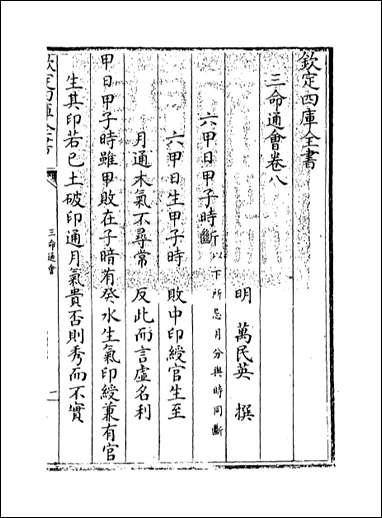 欽定四庫全書
三命通會卷八
明 萬民英 撰
六甲日甲子時斷以下所忌月分與時同斷
六甲日生甲子時 敗中印綬官生至
月通木氣不尋常 反此而言虛名利
甲日甲子時雖甲敗在子暗有癸水生氣印綬兼有官
生其印若己土破印通月氣貴否則秀而不實
欽定四庫全書
三命通會